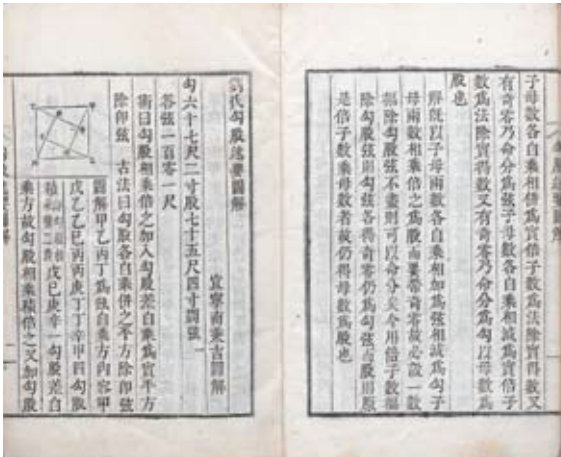 子母數各自乘相併為實倍子數為法除實得數又
有奇零乃命分為弦子母數各自乘相減為實倍子
數為法除實得數又有奇零乃命分為勾以母數為
股也
解既以子母兩數各自乘相加為弦相減為勾子
母兩數相乘倍之為股而要帶奇零故必設一數
除勾股弦不盡則可以命分矣今用倍子數
除勾股弦則勾弦各得奇零仍為勾弦而股用原
是倍子數乘母數者故仍得母數為股也
氏勾股述要圖解
宜寧南秉吉圖解
勾六十七尺二寸股七十五尺四寸問弦
答弦一百零一尺
術曰勾股相乘倍之加入勾股差自乘為實平方
除卽弦 古法曰勾股各自乘併之平方除卽弦
圖解甲乙丙丁為弦自乘方內容甲
戊乙乙己丙丙庚丁丁辛甲四勾股
積 戊己庚辛一勾股差自
乘方故勾股相乘積倍之又加勾股